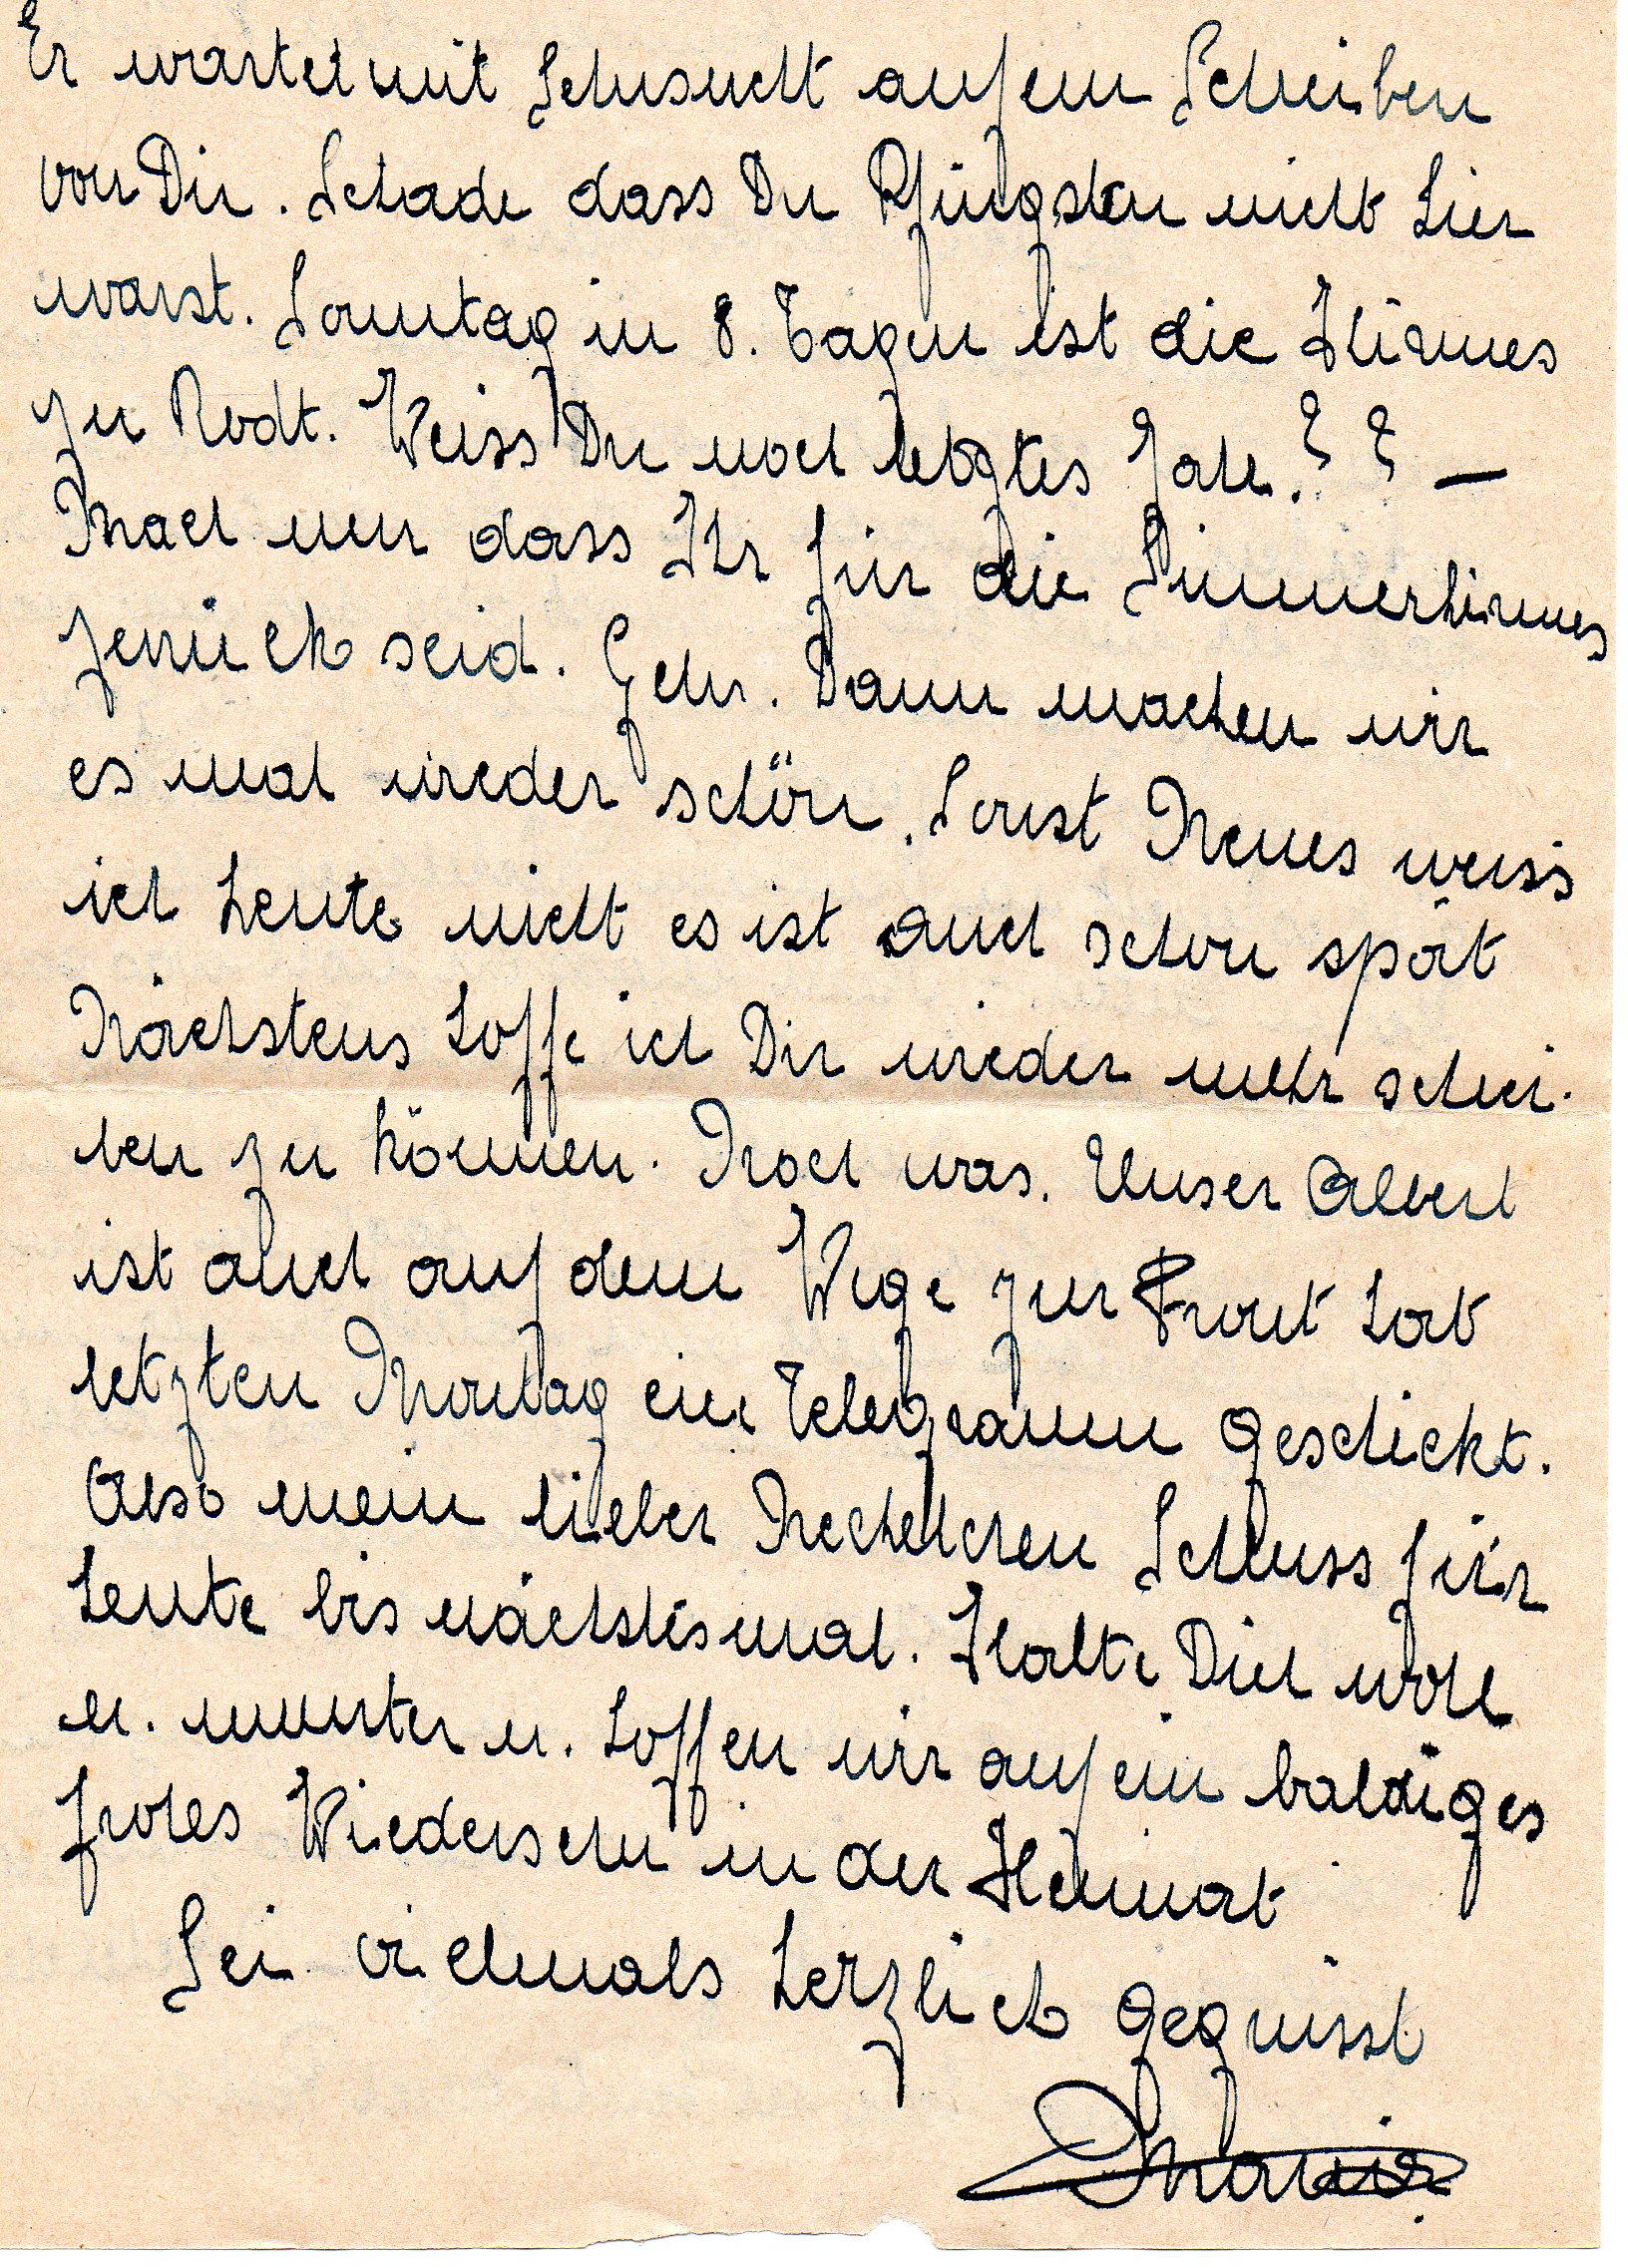 Er wartet mit Sehnsucht auf ein Schreiben
von Dir. Schade dass Du Pfingsten nicht hier
warst. Sonntag in 8. Tagen ist die Kirmes
zu Rodt. Weiss Du noch letztes Jahr. ? ? —
Mach nun dass Ihr für die Sommerkirmes
zurück seid. Gehr. Dann machen wir
es mal wieder schön. Sonst Neues weiss
ich heute nicht es ist auch schon spät
Nächstens hoffe ich Dir wieder mehr schrei-
ben zu können. Noch was. Unser Albert
ist auch auf dem Wege zur Front hat
letzten Montag ein Telegramm geschickt.
Also mein lieber Schluss für
heute bis nächstesmal. Halte Dich wohl
u. munter u. hoffen wir auf ein baldiges
frohes Wiedersehn in der Heimat
Sei vielmals herzlich gegrüsst
Maria